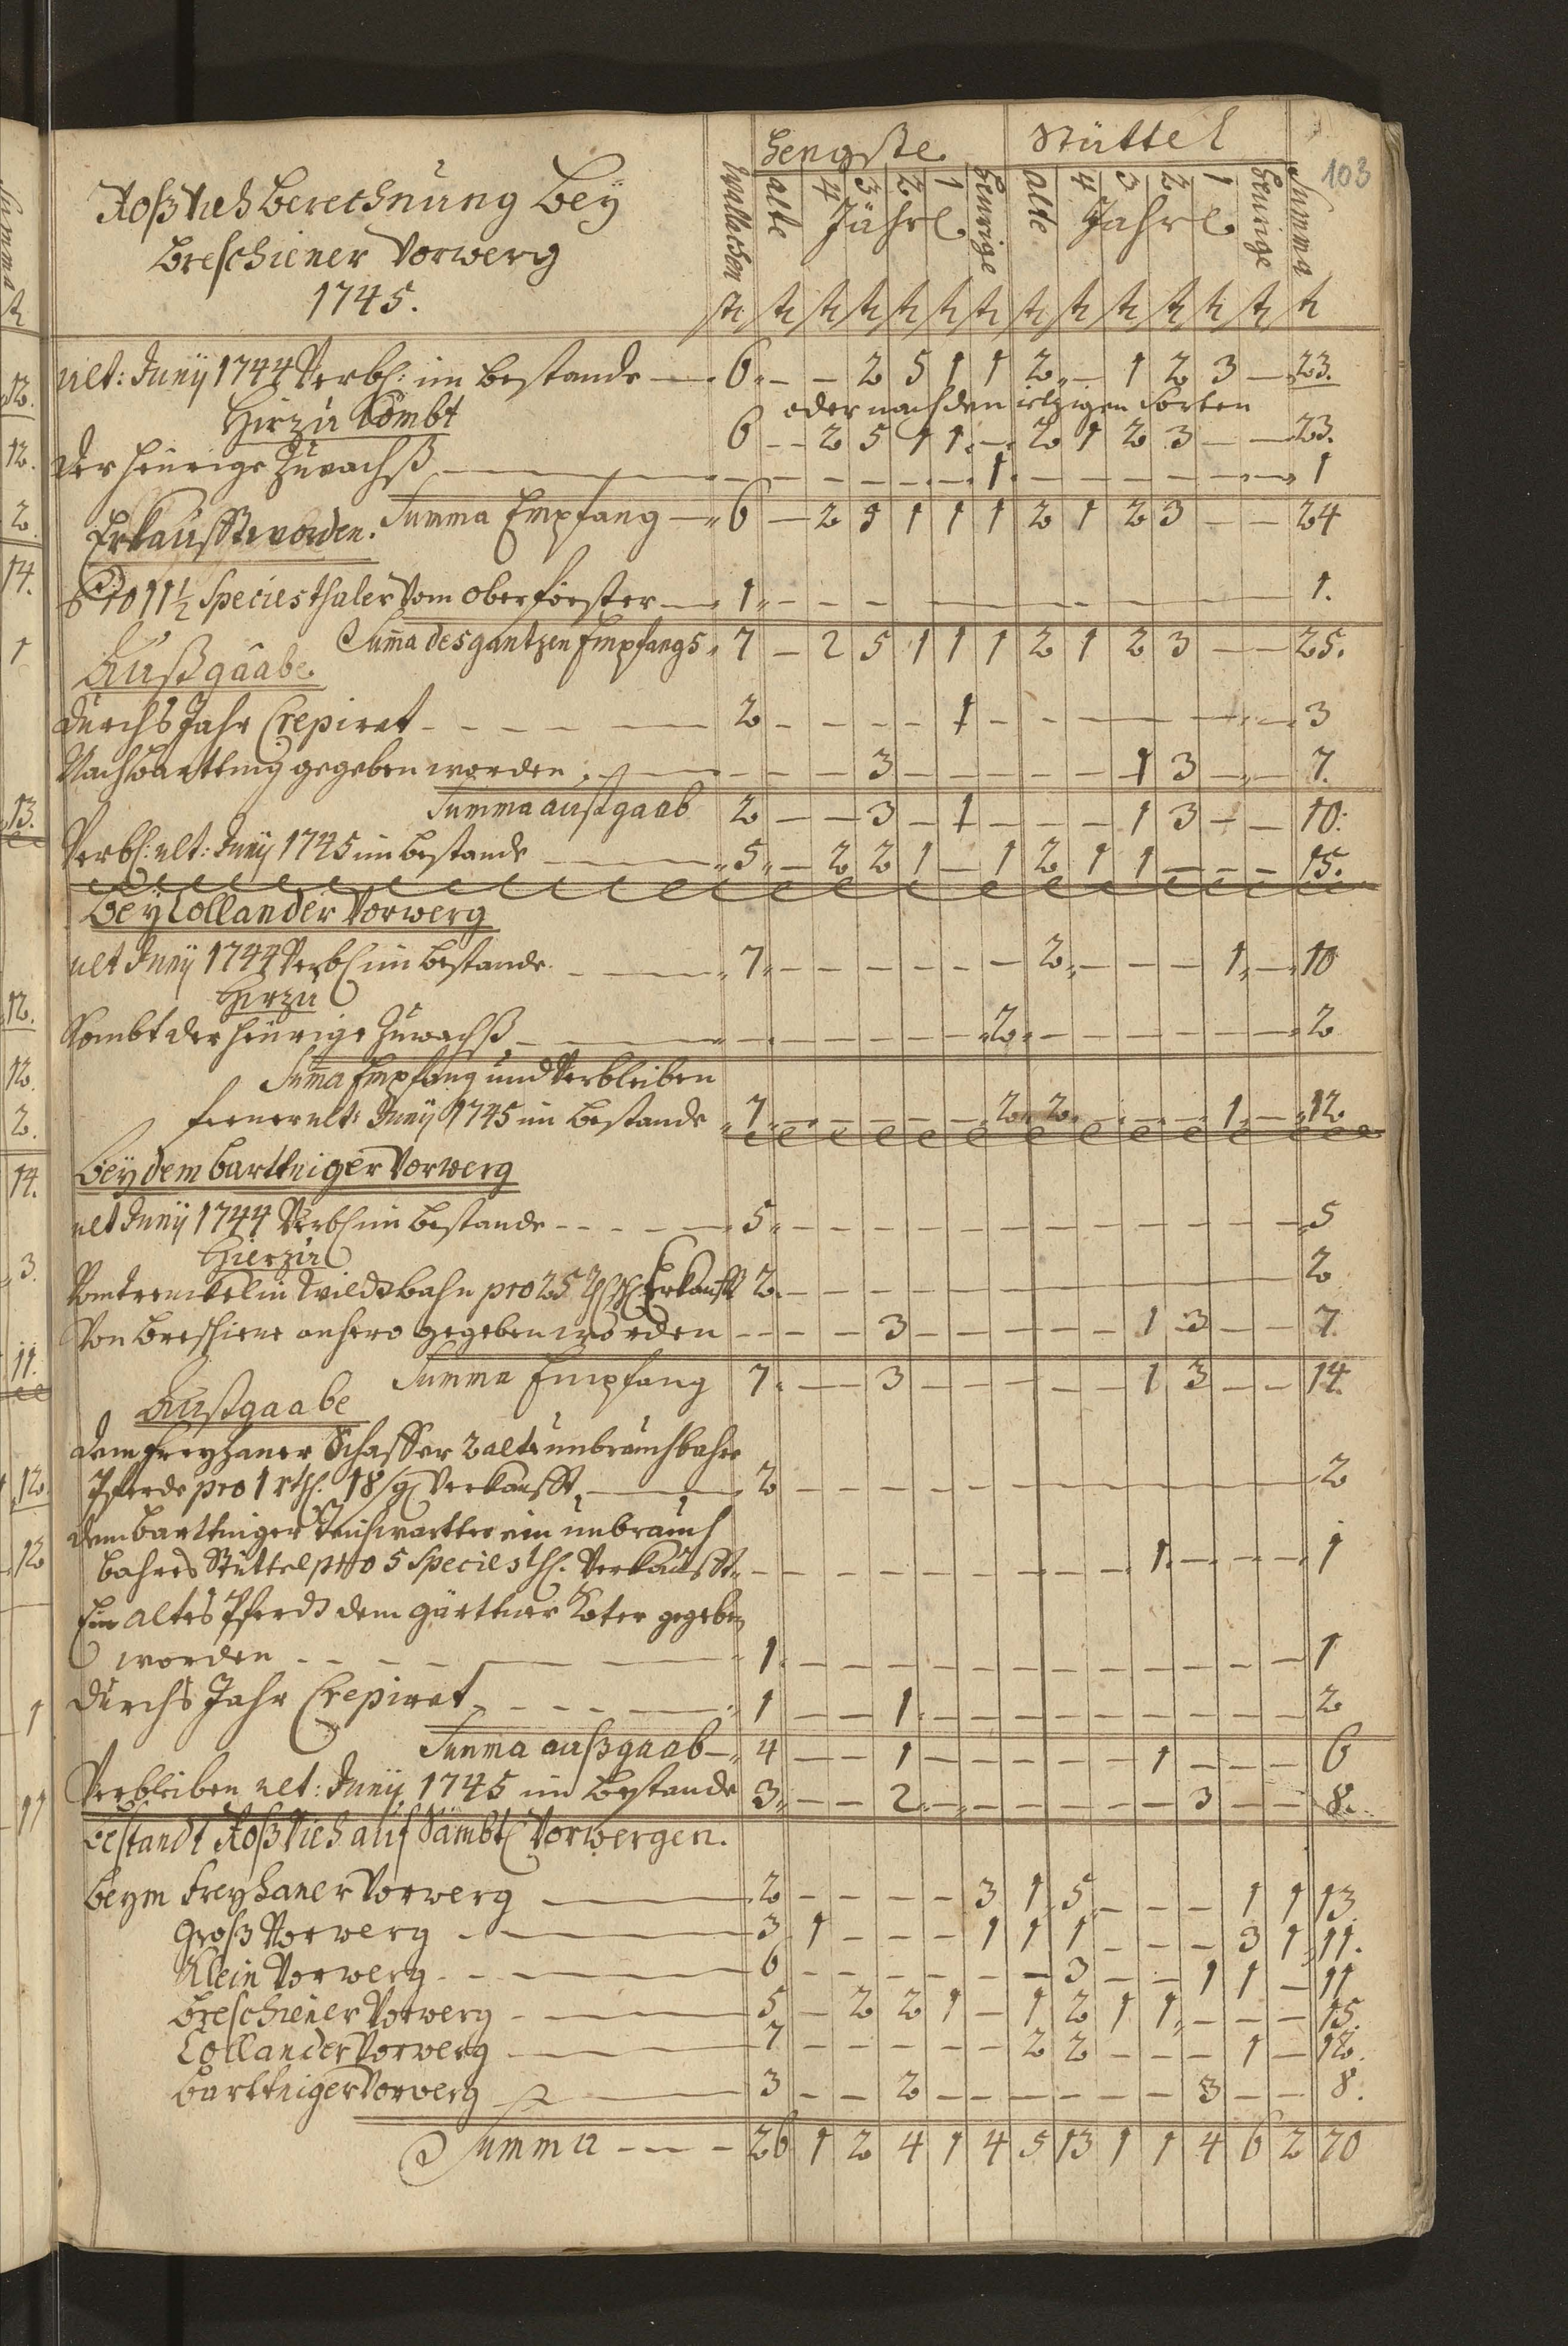 103
Roß Vieh Berechnung Bey
Breschiener Vorwerg
1745.
Wallachen | Hengste | Stüttel | Summa
alte 4 3 2 1 heurige | alte 4 3 2 1 heurige
Jährl. | Jährl.
st st st st st st st st st st st st st st
ult: Junÿ 1744 Verbl: im Bestande — 6 – – 2 5 1 1 2 – 1 2 3 – 23.
Hirzu Kombt
oder nach den itzigen Sorten
6 – 2 5 1 1 – 2 1 2 3 – – 23.
der heurige Zuwachß — – – – – – – 1 – – – – – – 1
Summa Empfang — 6 – 2 5 1 1 1 2 1 2 3 – – 24
Erkaufft worden.
pro 11½ Species thaler Vom Oberförster — 1 – – – – 1.
Summa des gantzen Empfangs 7 – 2 5 1 1 1 2 1 2 3 – – 25.
Außgaabe.
durchs Jahr Crepiret – – – 2 – – – – 1 – – – – 3
Nach Barttnig gegeben worden – – – 3 – – – – – 1 3 – – 7.
Summa außgaab 2 – – 3 – 1 – – – 1 3 – – 10.
Verbl: ult: Junÿ 1745 im Bestande — 5 – 2 2 1 – 1 2 1 1 – – – 15.
Beÿ Collander Vorwerg
ult Junÿ 1744 Verbl im Bestande — 7 – – – – – – 2 – – – 1 – 10
Hirzu
Kombt der heurige Zuwachß — – – – – – – 2 – – – – – – 2
Summa Empfang und Verbleiben
ferner ult: Junÿ 1745 im Bestande 7 – – – – – 2 2 – – – 1 – 12
Beÿ dem Barttniger Vorwerg
ult Junÿ 1744 Verbl im Bestande – – – 5 – – – – – – – – – – – – 5
Hierzu
in Wildbahn pro 25 Erkaufft 2 – – – – 2
Von Breschiene anhero gegeben worden – – – 3 – – – – – 1 3 – – 7.
Summa Empfang 7 – – 3 – – – – – 1 3 – – 14.
Außgaabe
dem Freyhaner Schaffer 2 alte unbrauchbahre
Pferde pro 1 rth. 18 sgl Verkaufft — 2 – – – – 2
dem Barttniger Teichwartter ein unbrauch
bahres Stüttel pro 5 Species thl. Verkaufft – – – – – – – – – 1 – – – 1
Ein altes Pferdt dem gärttner Koter gegeben
worden – – – 1 – – – – – – – – – – – – 1
durchs Jahr Crepiret – – – 1 – – 1 – – – – – – – – – 2
Summa außgaab – 4 – – 1 – – – – – 1 – – – 6
Verbleiben ult: Junÿ 1745 im Bestande 3 – – 2 – – – – – – 3 – – 8.
Bestandt Roß Vieh auf Sämbtl Vorwergen.
Beym Freyhaner Vorwerg — 2 – – – – 3 1 5 – – – 1 1 13
Groß Vorwerg — 3 1 – – – 1 1 1 – – – 3 1 11.
Klein Vorwerg — 6 – – – – – – 3 – – 1 1 – 11
Breschiener Vorwerg — 5 – 2 2 1 – 1 2 1 1 – – – 15.
Collander Vorwerg — 7 – – – – – 2 2 – – – 1 – 12.
Barttniger Vorwerg — 3 – – 2 – – – – – – 3 – – 8.
Summa – – – 26 1 2 4 1 4 5 13 1 1 4 6 2 70